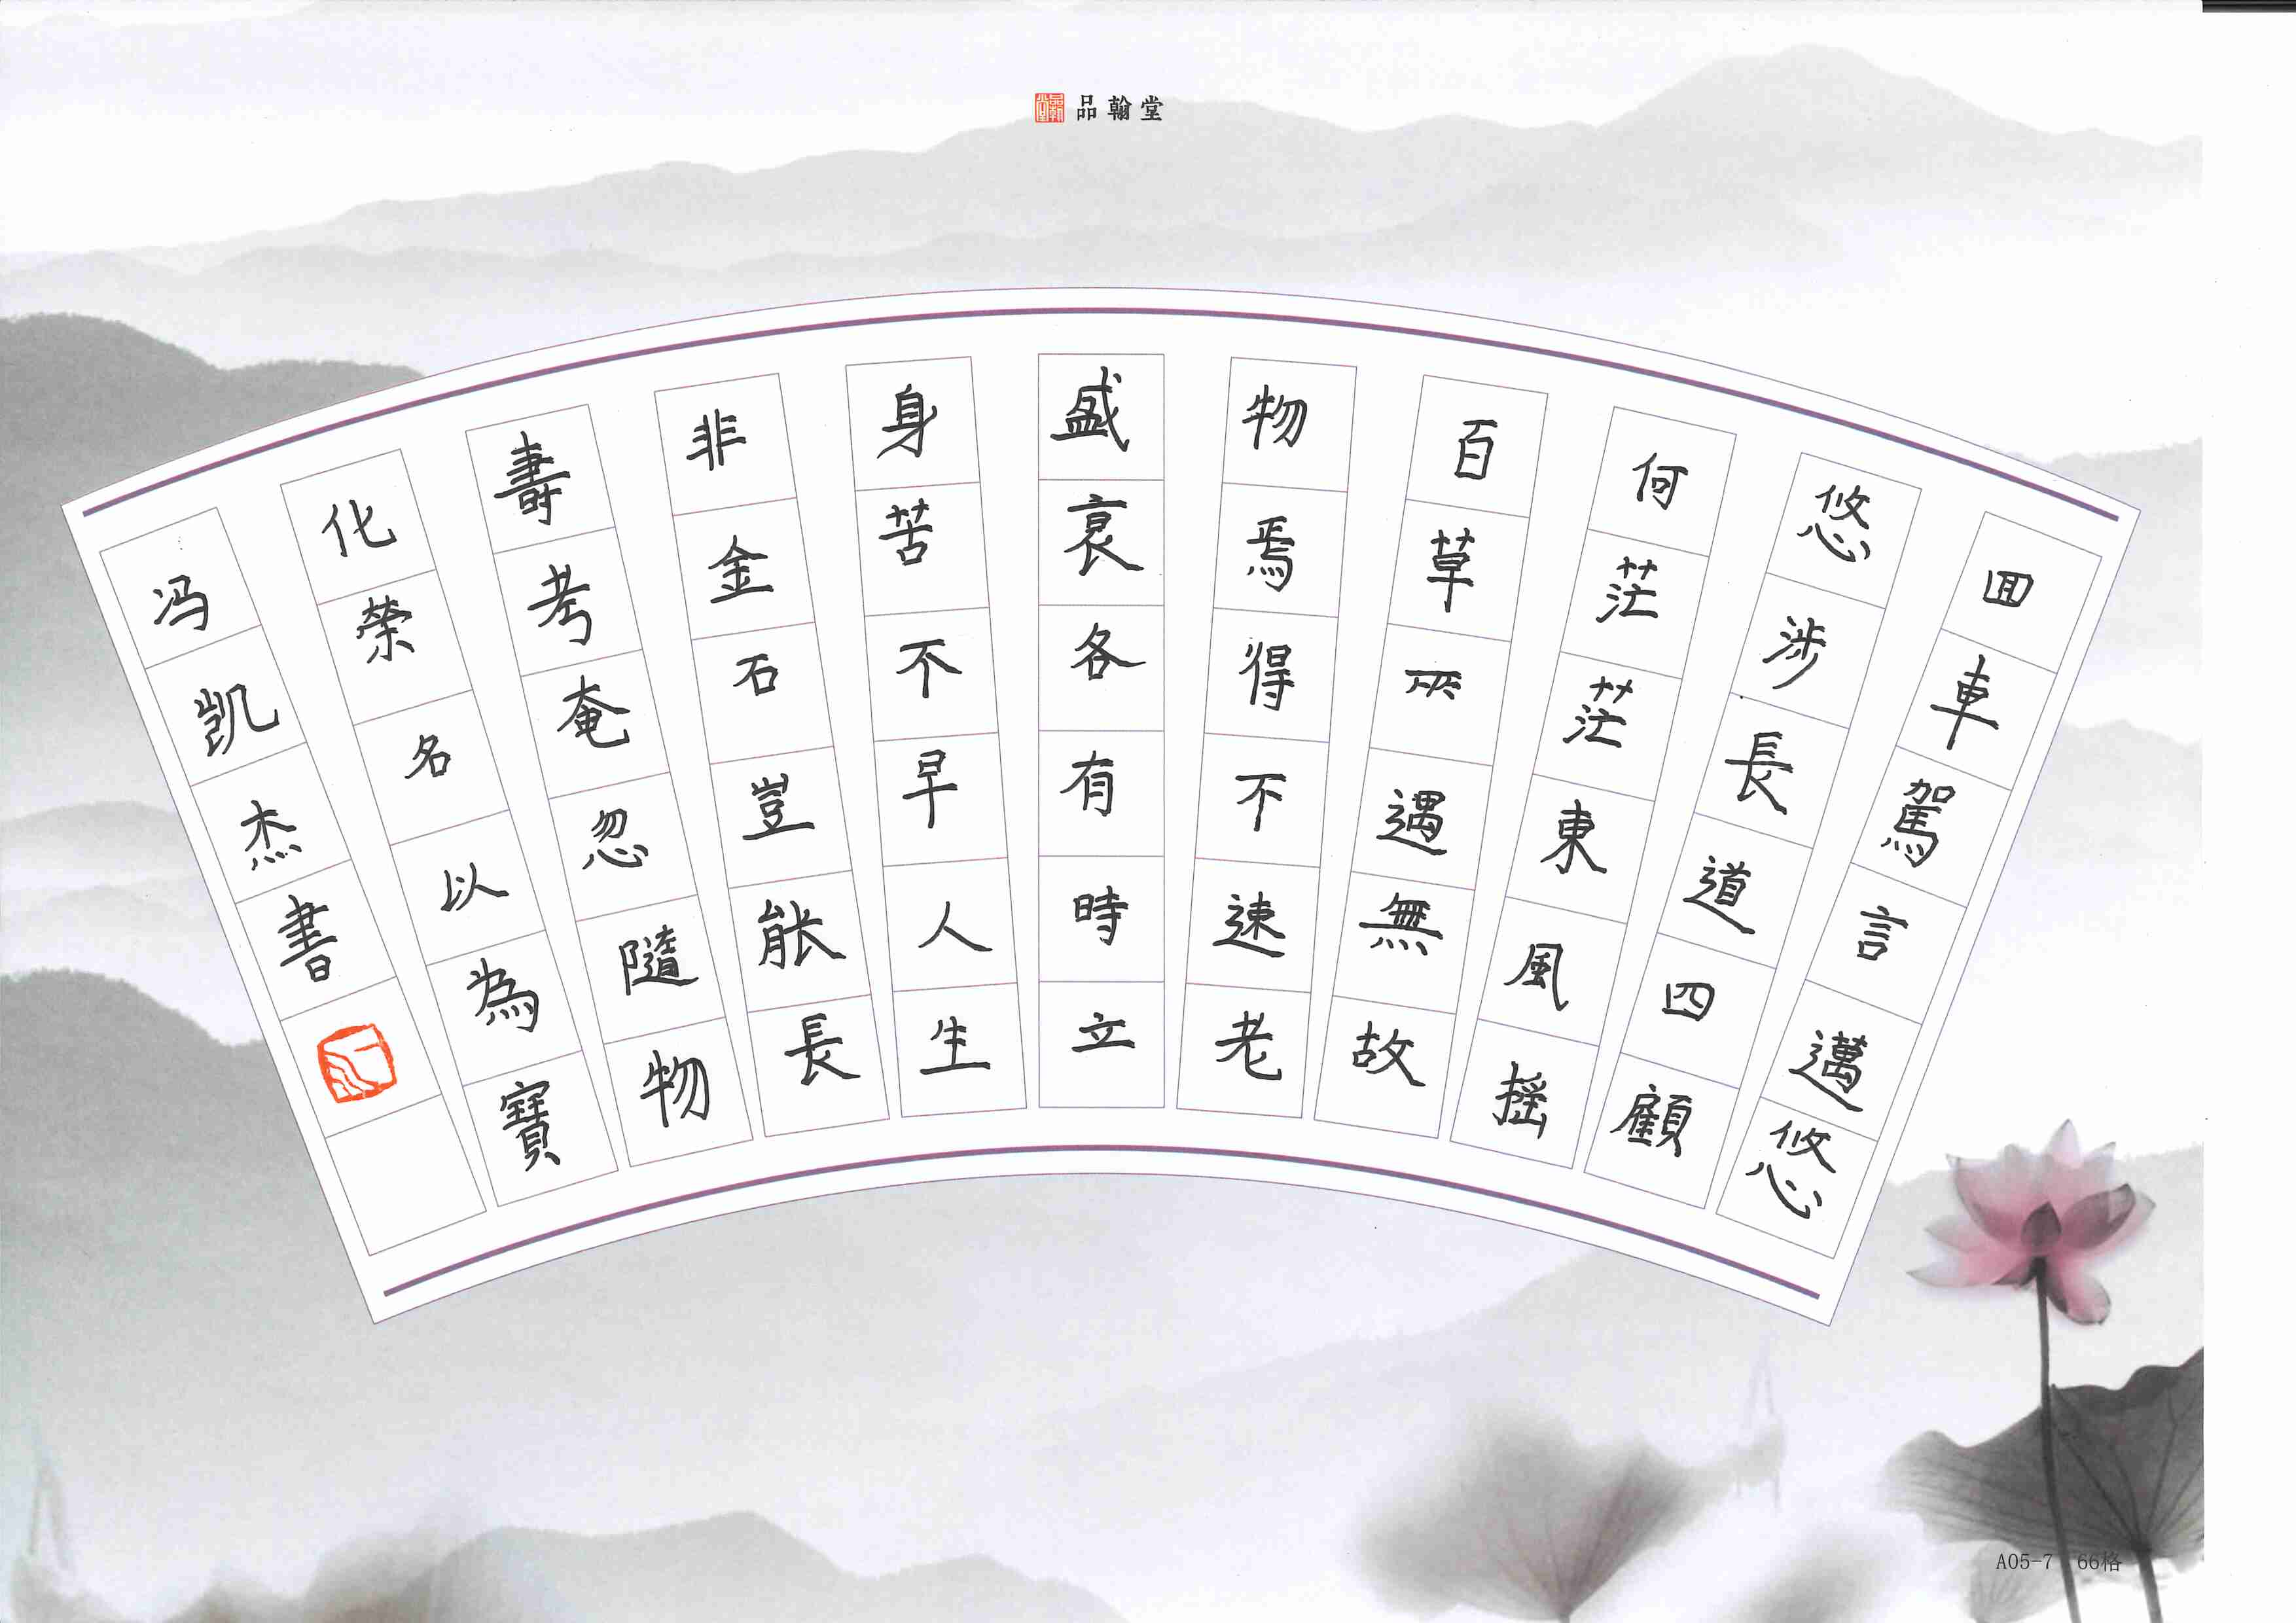 品翰堂
囬車駕言邁悠
悠涉長道四顧
何茫茫東風摇
百草所遇無故
物焉得不速老
盛衰各有時立
身苦不早人生
非金石豈能長
壽考奄忽隨物
化榮名以為寶
冯凯杰書
A05-7 66格